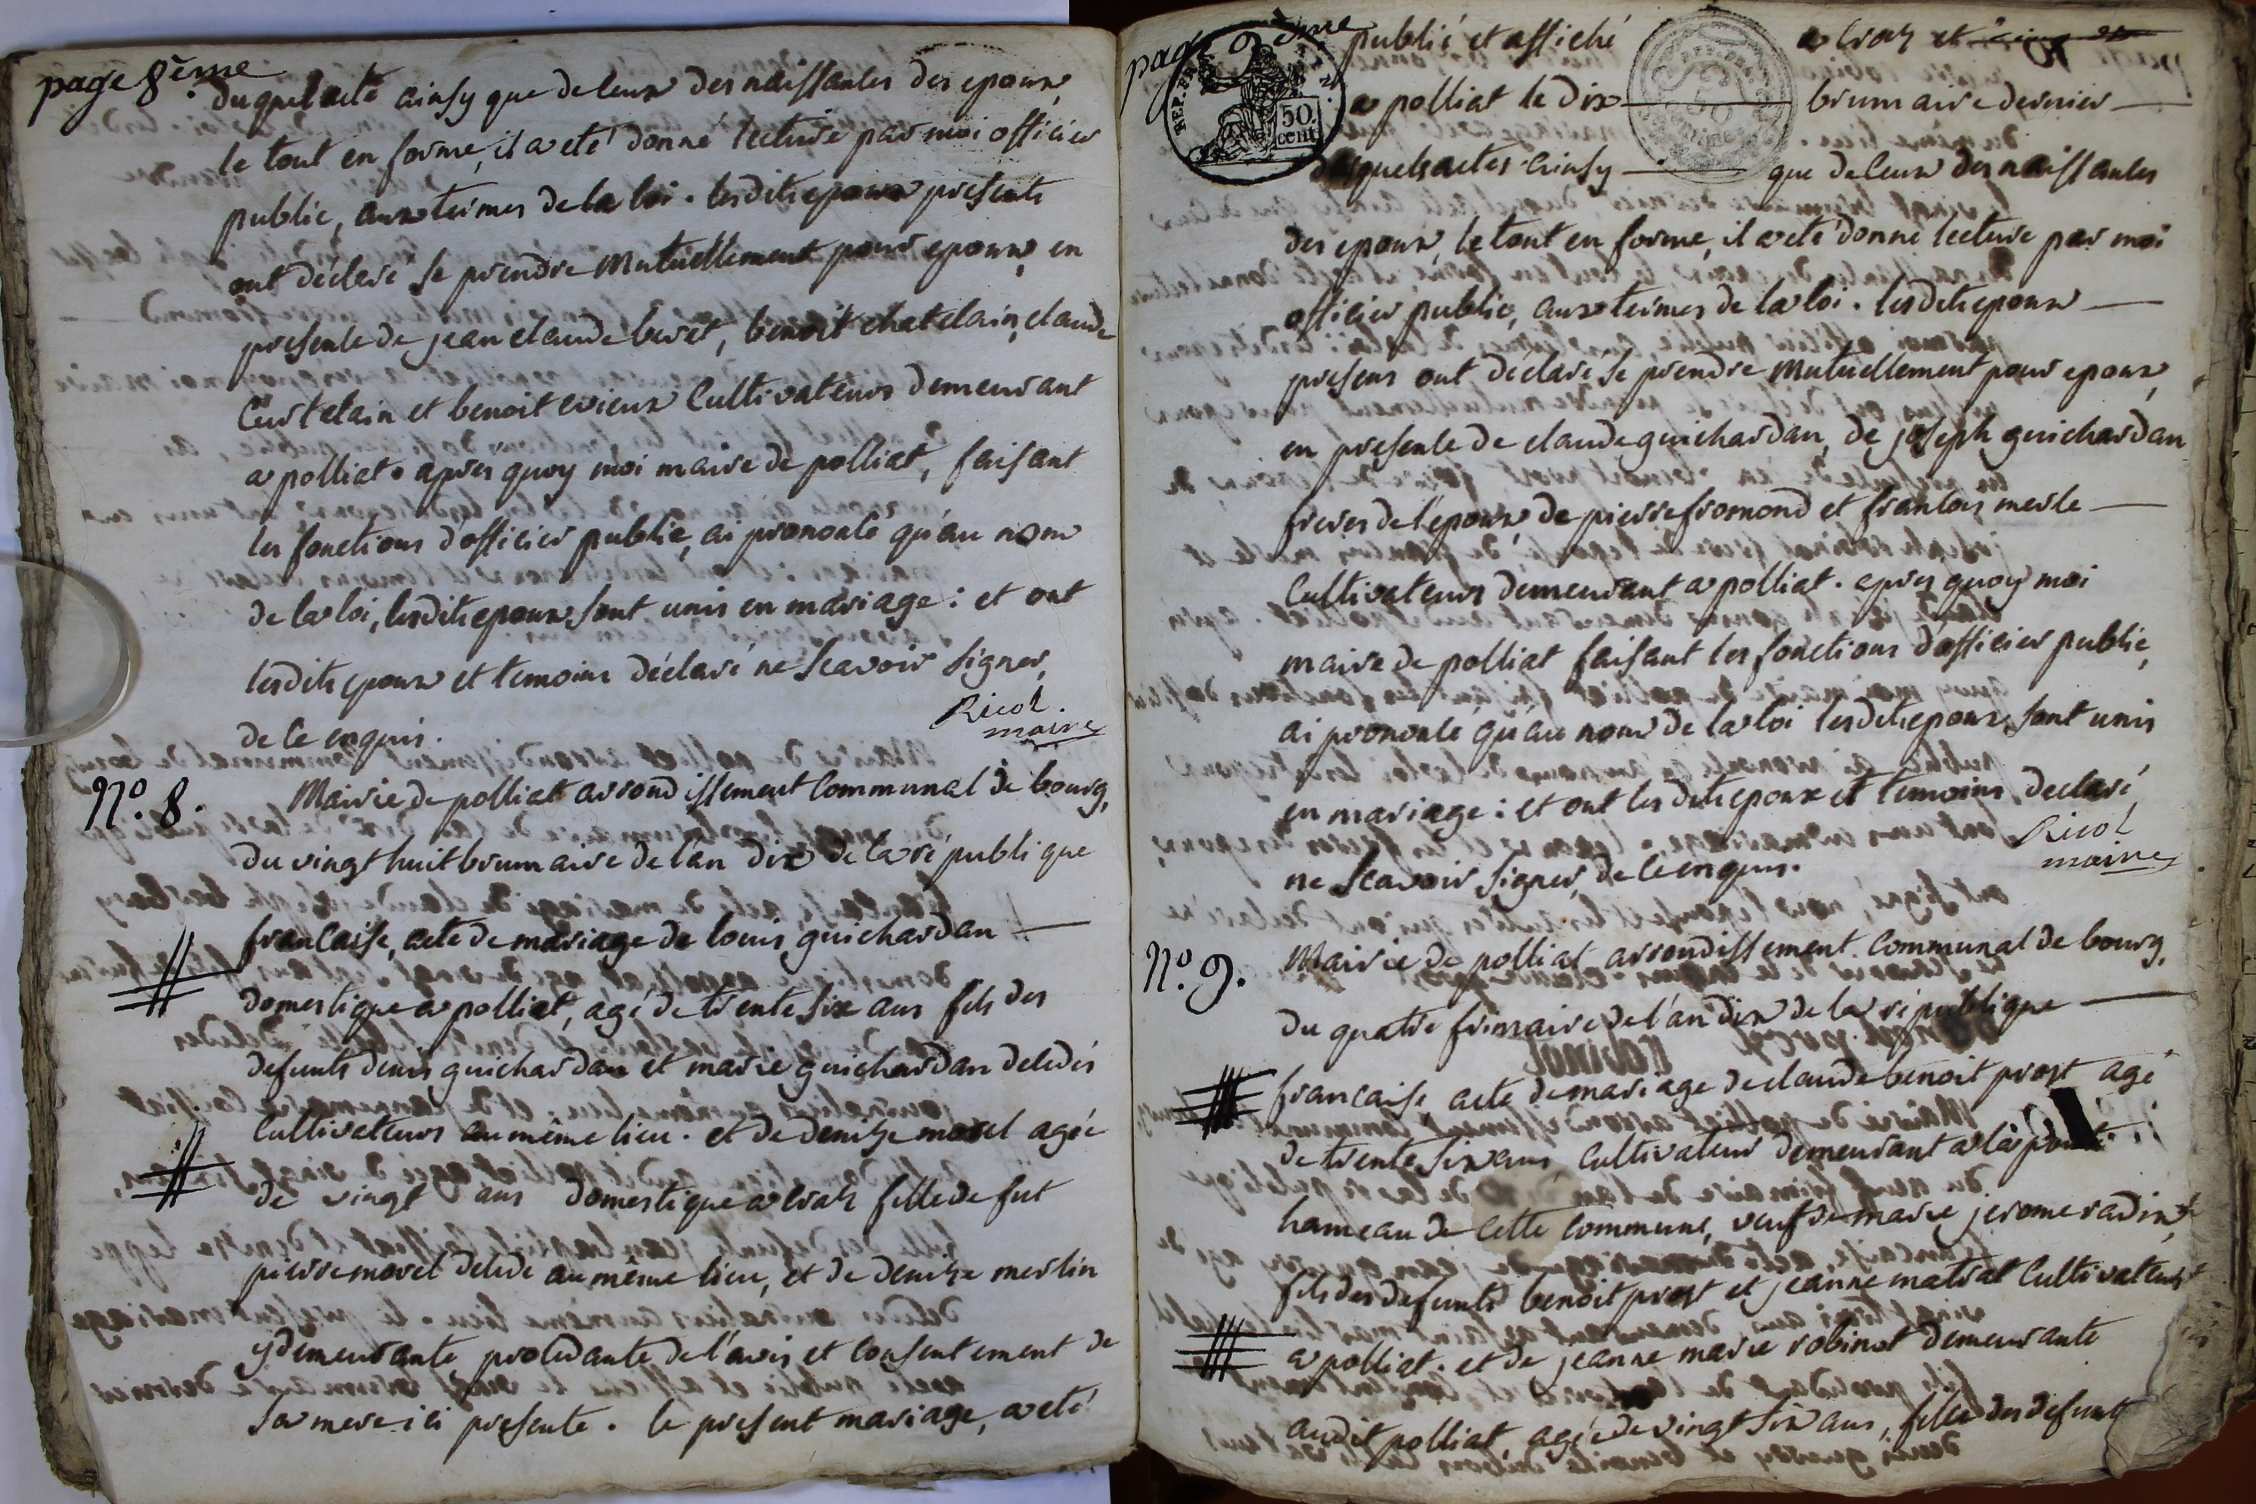 page 8ème
duquel acte ainsy que de ceux des naissances des epoux,
le tout en forme, il a eté donné lecture par moi officier
public, aux termes de la loi. lesdits epoux presents
ont déclaré se prendre mutuellement pour epoux, en
presence de jean claude buret, benoit chatelain, claude
curtelain et benoit evieux cultivateurs demeurant
a polliat. après quoy moi maire de polliat, faisant
les fonctions d'officier public, ai prononcé qu'au nom
de la loi, lesdits epoux sont unis en mariage: et ont
lesdits epoux et temoins déclaré ne scavoir signer,
de ce enquis.
Ricol
maire
N.o 8.
Mairie de polliat arrondissement communal de bourg,
du vingt huit brumaire de l'an dix de la république
francaise, acte de mariage de louis guichardan
domestique a polliat, agé de trente six ans fils des
defunts denis guichardan et marie guichardan decedés
cultivateurs au même lieu. et de denise morel agée
de vingt ans domestique a cras fille de fut
pierre morel decedé au même lieu, et de denise merlin
y demeurante procedante de l'avis et consentement de
sa mere ici presente. le present mariage, a eté
page 9ème
REP. FRA.
50.
cent.
publié et affiché a cras et
a polliat le dix brumaire dernier
desquels actes ainsy que de ceux des naissances
des epoux, le tout en forme, il a eté donné lecture par moi
officier public, aux termes de la loi. lesdits epoux
presens ont déclaré se prendre mutuellement pour epoux,
en presence de claude guichardan, de joseph guichardan
freres de l'epoux, de pierre fromond et francois merle
cultivateurs demeurant a polliat. apres quoy moi
maire de polliat faisant les fonctions d'officier public,
ai prononcé qu'au nom de la loi lesdits epoux, sont unis
en mariage: et ont lesdits epoux et temoins, declaré,
ne scavoir signer, de ce enquis.
Ricol
maire
N.o 9.
Mairie de polliat arrondissement communal de bourg,
du quatre frimaire de l'an dix de la république
francaise, acte de mariage de claude benoit prost agé
de trente six ans, cultivateur demeurant a
hameau de cette commune, veuf de marie jerome radix,
fils des defunts benoit prost et jeanne matrat cultivateurs
a polliat. et de jeanne marie robinot demeurante
audit polliat, agée de vingt six ans, fille des defunts